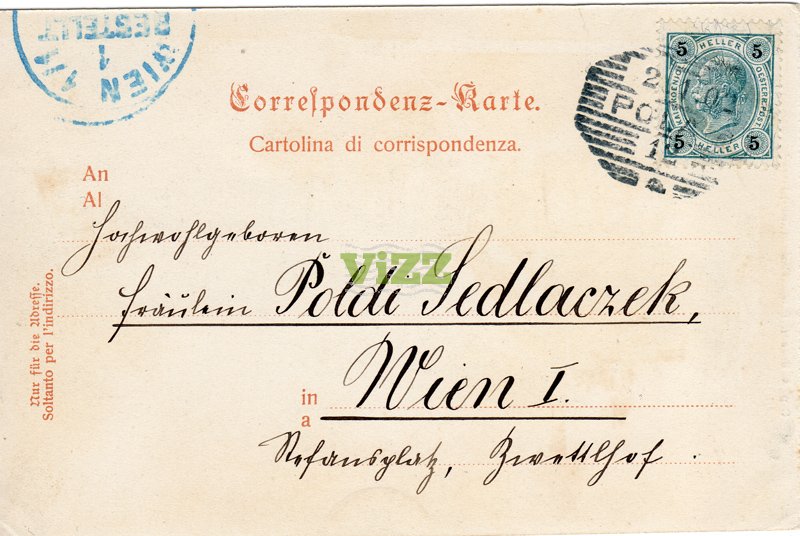 WIEN 1/1
BESTELLT
1
5 HELLER 5
5 HELLER 5
Correspondenz-Karte.
Cartolina di corrispondenza.
An
Al
Hochwohlgeboren
Fräulein Poldi Sedlaczek,
in
a
Wien I.
Stefansplatz, Zwettlhof
Nur für die Adresse.
Soltanto per l'indirizzo.
ViZZ